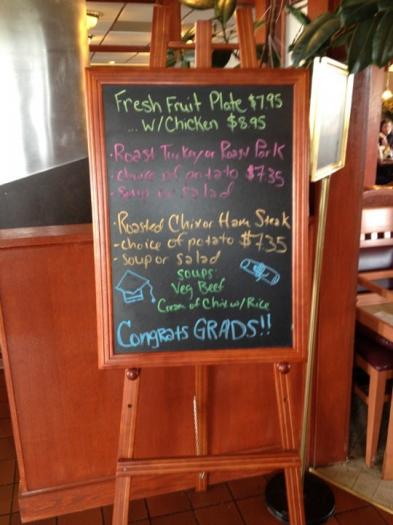 Fresh Fruit Plate $7.95
... w/Chicken $8.95
· Roast Turkey or Roast Pork
· choice of potato $7.35
· soup or salad
· Roasted Chix or Ham Steak
- choice of potato $7.35
- soup or salad
SOUPS
Veg Beef
Cream of Chix w/ Rice
Congrats GRADS!!